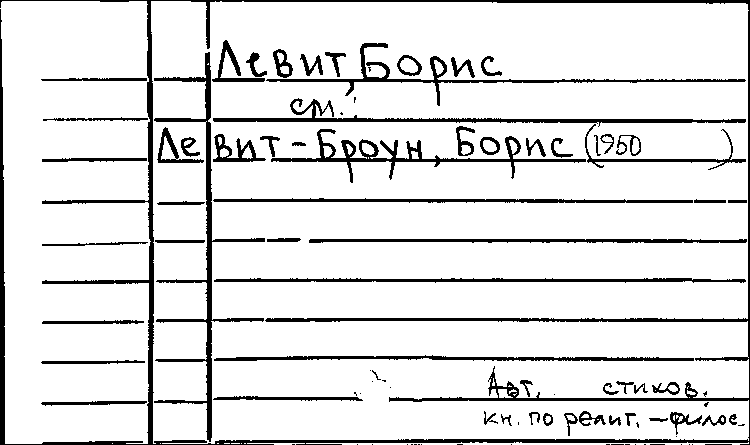 Левит, Борис
см.:
Левит-Броун, Борис (1950 )
Авт. стихов.
кн. по религ. – филос.